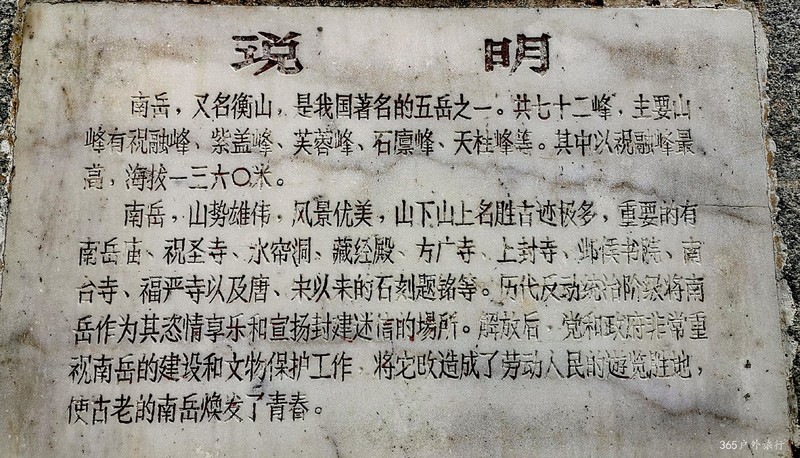 说 明
南岳，又名衡山，是我国著名的五岳之一。共七十二峰，主要山
峰有祝融峰、紫盖峰、芙蓉峰、石廪峰、天柱峰等。其中以祝融峰最
高，海拔一三六〇米。
南岳，山势雄伟，风景优美，山下山上名胜古迹极多，重要的有
南岳庙、祝圣寺、水帘洞、藏经殿、方广寺、上封寺、邺侯书院、南
台寺、福严寺以及唐、宋以来的石刻题铭等。历代反动统治阶级将南
岳作为其恣情享乐和宣扬封建迷信的場所。解放后，党和政府非常重
视南岳的建设和文物保护工作，将它改造成了劳动人民的遊览胜地，
使古老的南岳焕发了青春。
365户外旅行